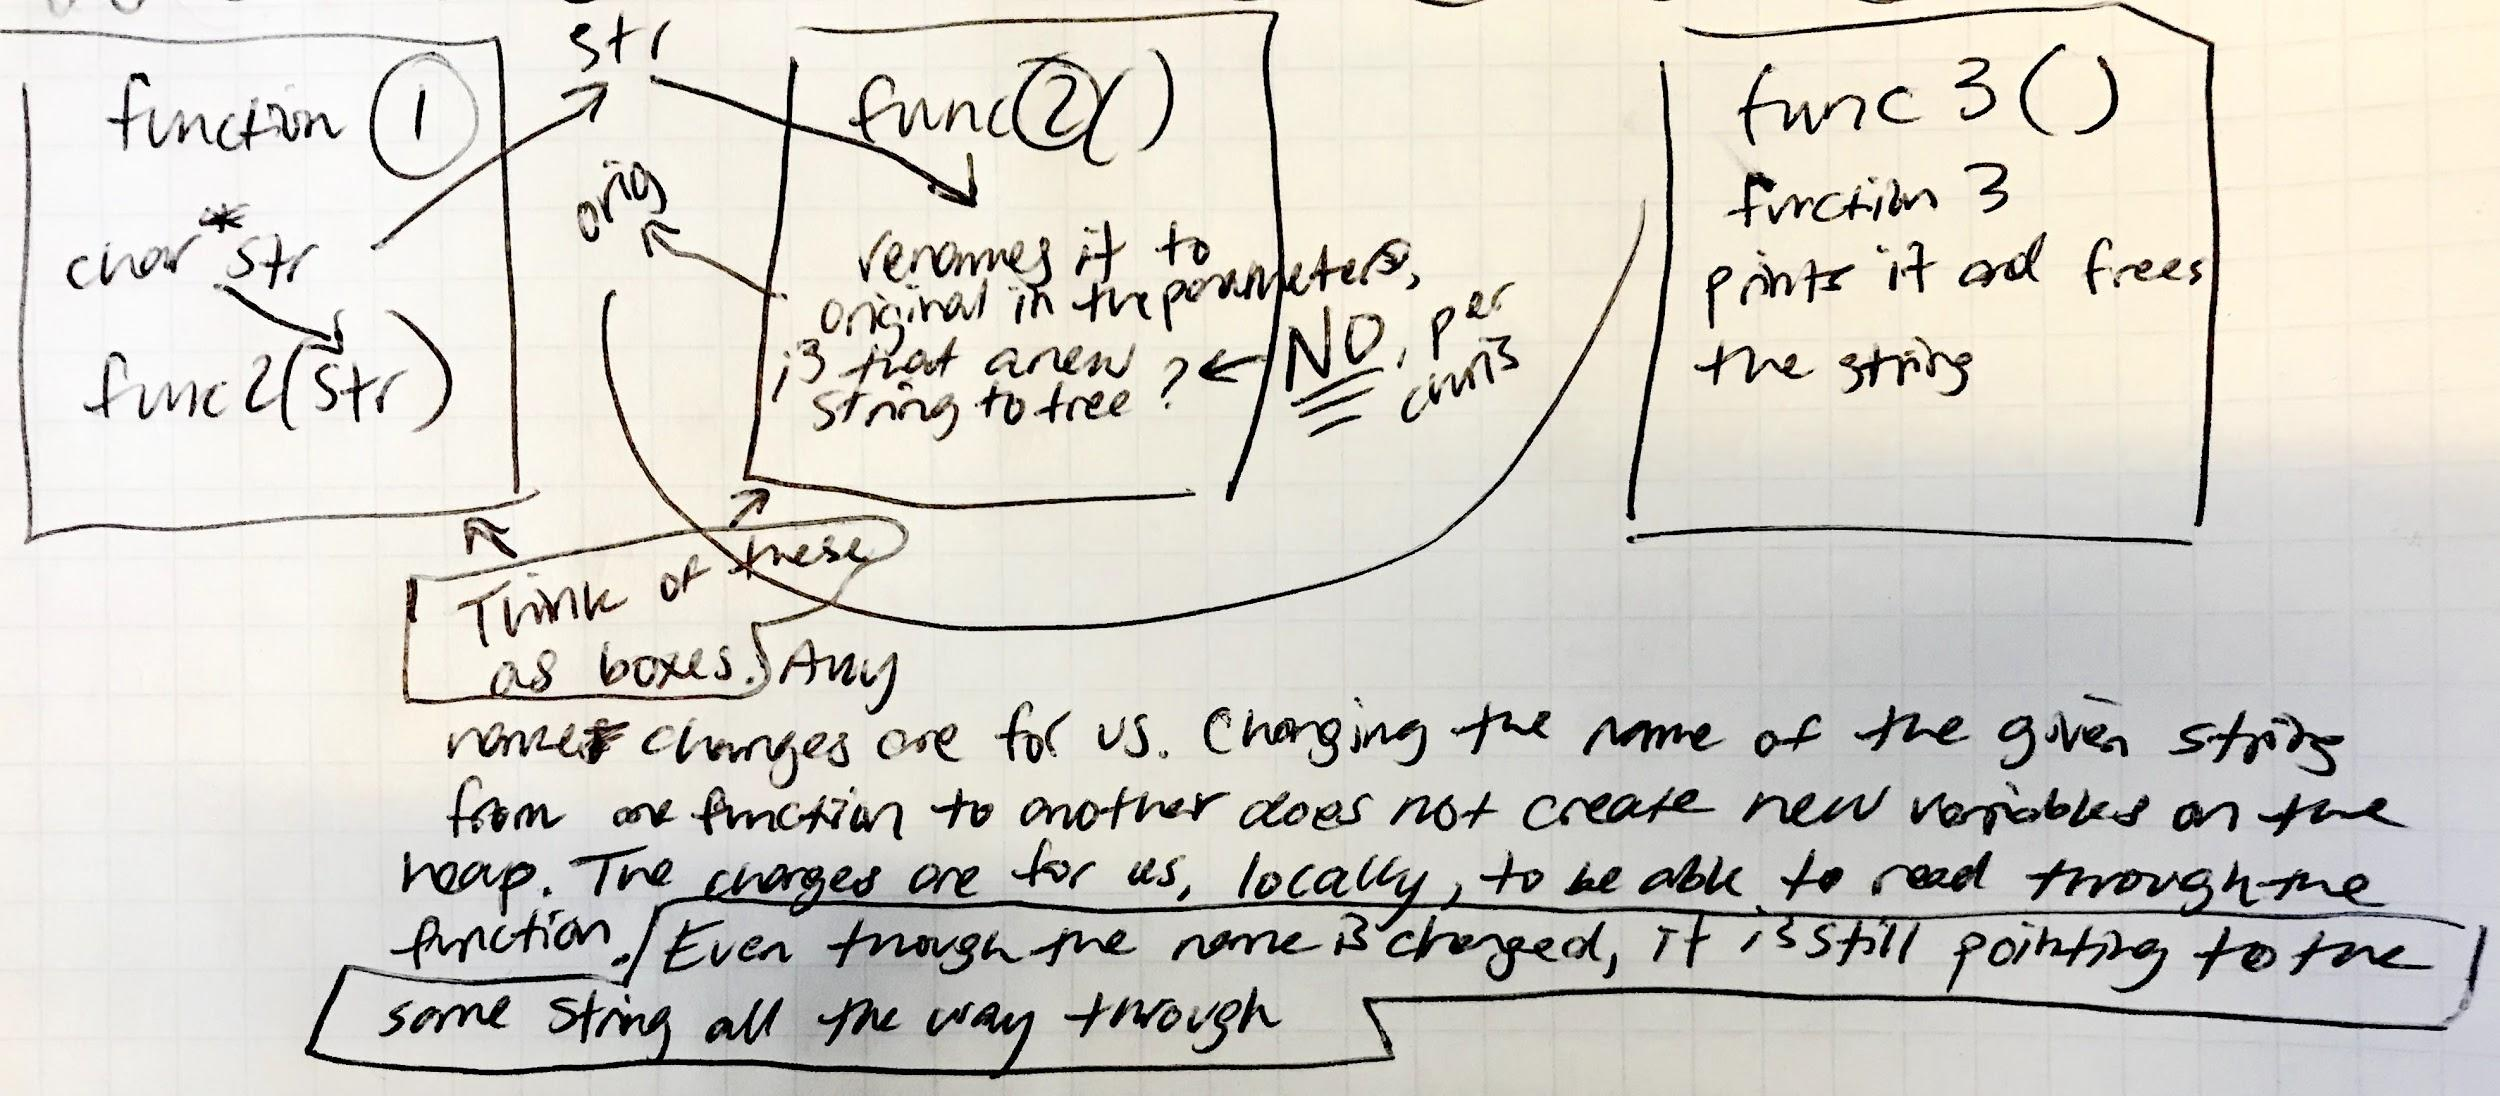 function 1
char *str
func2(str)
str
orig
func2()
renames it to
original in the parameters,
is that a new
string to free?
← NO, per
chris
func 3()
function 3
prints it and frees
the string
Think of these
as boxes. Any
name changes are for us. Changing the name of the given string
from one function to another does not create new variables on the
heap. The changes are for us, locally, to be able to read through the
function. Even though the name is changed, it is still pointing to the
same string all the way through